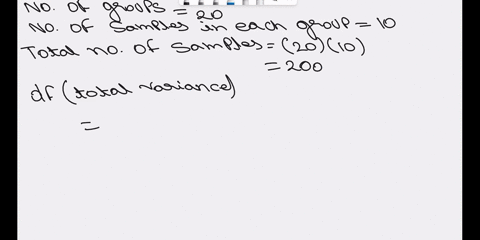 No. of groups = 20
No. of samples in each group = 10
Total no. of samples = (20)(10)
= 200
df (total variance)
=